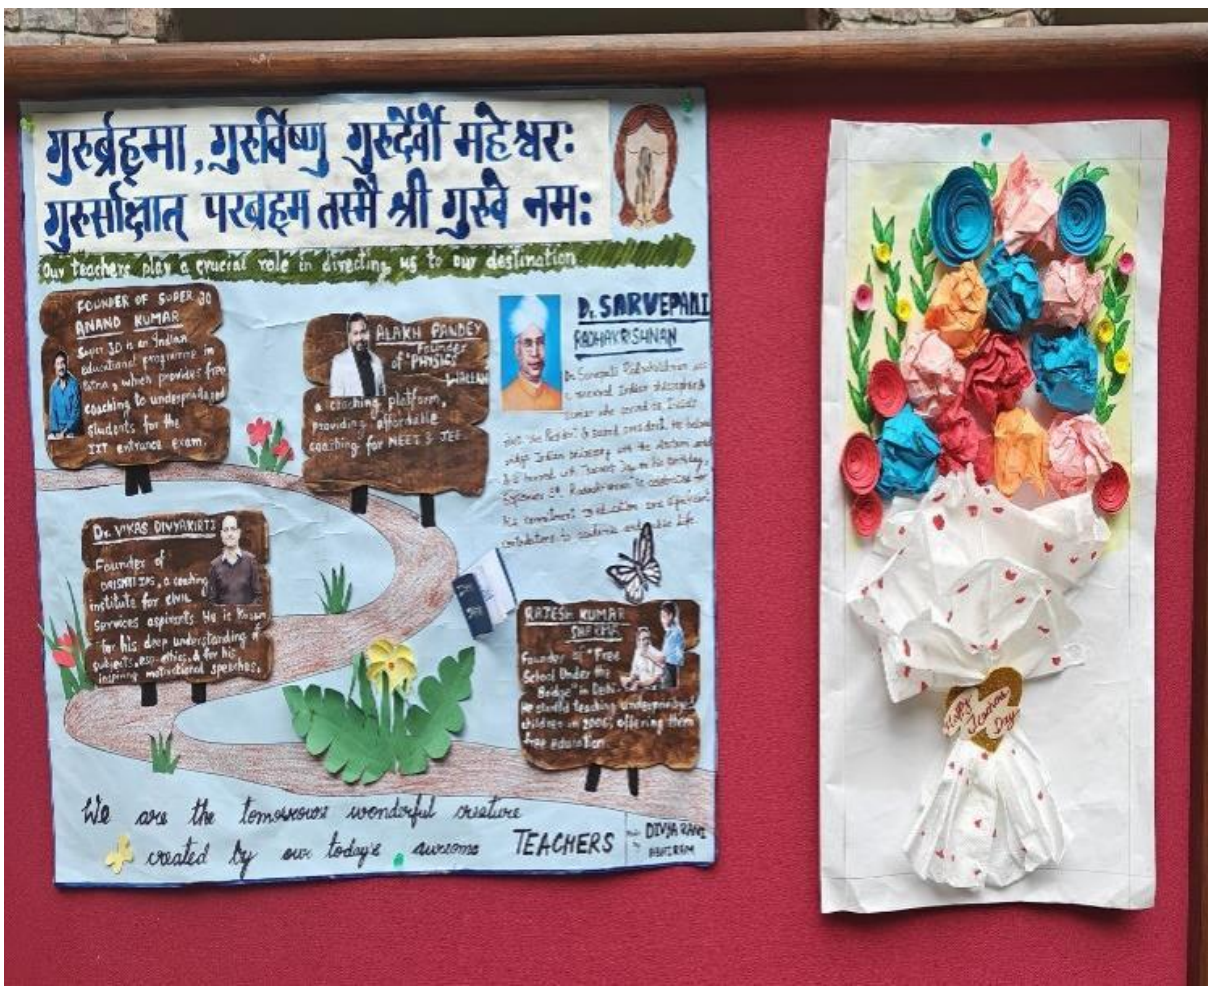 गुरुर्ब्रह्मा, गुरुर्विष्णु गुरुर्देवो महेश्वरः
गुरुर्साक्षात् परब्रहम तस्मै श्री गुरुवे नमः
Our teachers play a crucial role in directing us to our destination
FOUNDER OF SUPER 30
ANAND KUMAR
Super 30 is an Indian
educational programme in
Patna, which provides free
coaching to underprivileged
students for the
IIT entrance exam.
ALAKH PANDEY
Founder
of "PHYSICS
WALLAH
a coaching platform,
providing affordable
coaching for NEET & JEE.
Dr. SARVEPALLI
RADHAKRISHNAN
Dr. Sarvepalli Radhakrishnan was
a renowned Indian philosopher &
who served as India's
first Vice President & second president. He
Indian philosophy with the western and
is honored with Teachers Day on his birthday,
September 5. Radhakrishnan is celebrated for
his commitment to education and significant
contributions to academia and public life.
Dr. VIKAS DIVYAKIRTI
Founder of
DRISHTI IAS, a coaching
institute for civil
services aspirants. He is known
for his deep understanding of
subjects, esp. ethics, & for his
inspiring motivational speeches.
RAJESH KUMAR
SHARMA
Founder of "Free
School Under the
Bridge" in Delhi.
He started teaching underprivileged
children in 2006, offering them
free education
We are the tomorrows wonderful creature
created by our today's awesome TEACHERS
DIVYA RANI
Happy
Teachers
Day